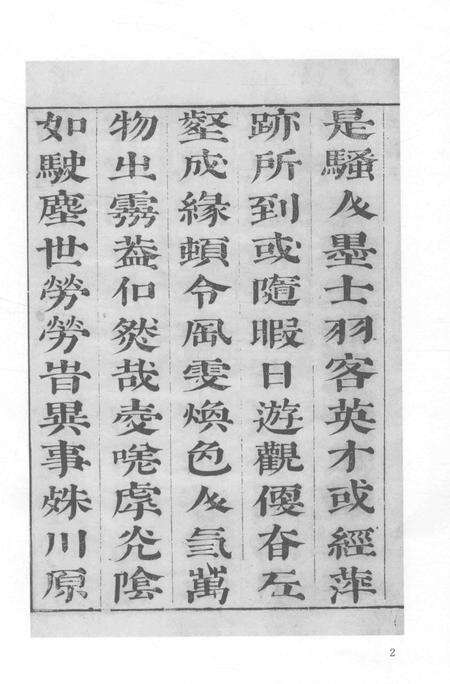 是騷人墨士羽客英才或經萍
跡所到或隨暇日遊觀優丘
壑成緣頓令風雯煥色人氣萬
物出霧葢然哉嗟虖光陰
如駛塵世勞勞昔異事殊川原
2